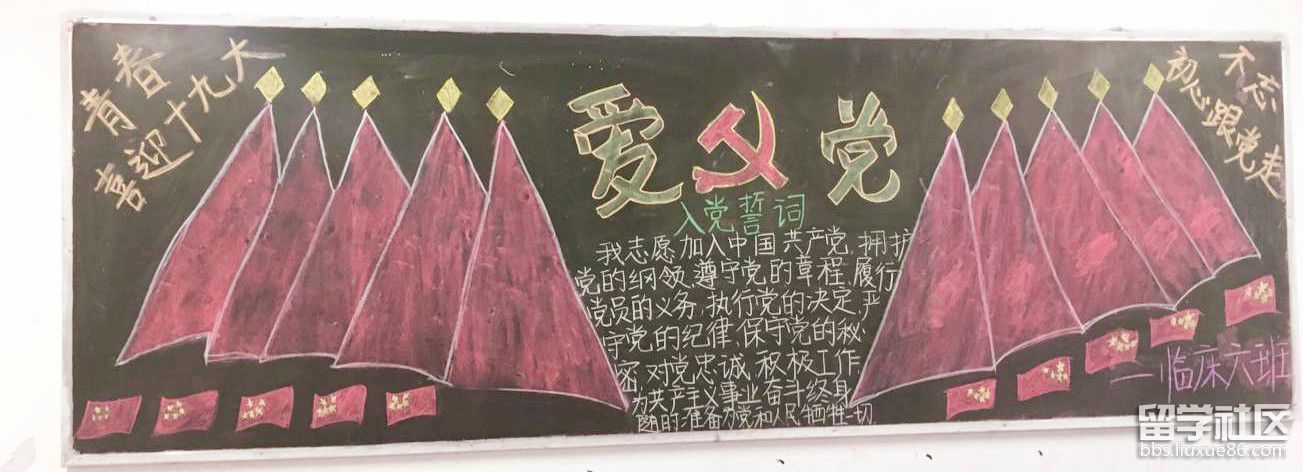 青春
喜迎十九大
爱党
入党誓词
我志愿加入中国共产党,拥护
党的纲领,遵守党的章程,履行
党员的义务,执行党的决定,严
守党的纪律,保守党的秘
密,对党忠诚,积极工作,
为共产主义事业奋斗终身,
随时准备为党和人民牺牲一切,
不忘
初心跟党走
——临床六班
留学社区
bbs.liuxue86.com